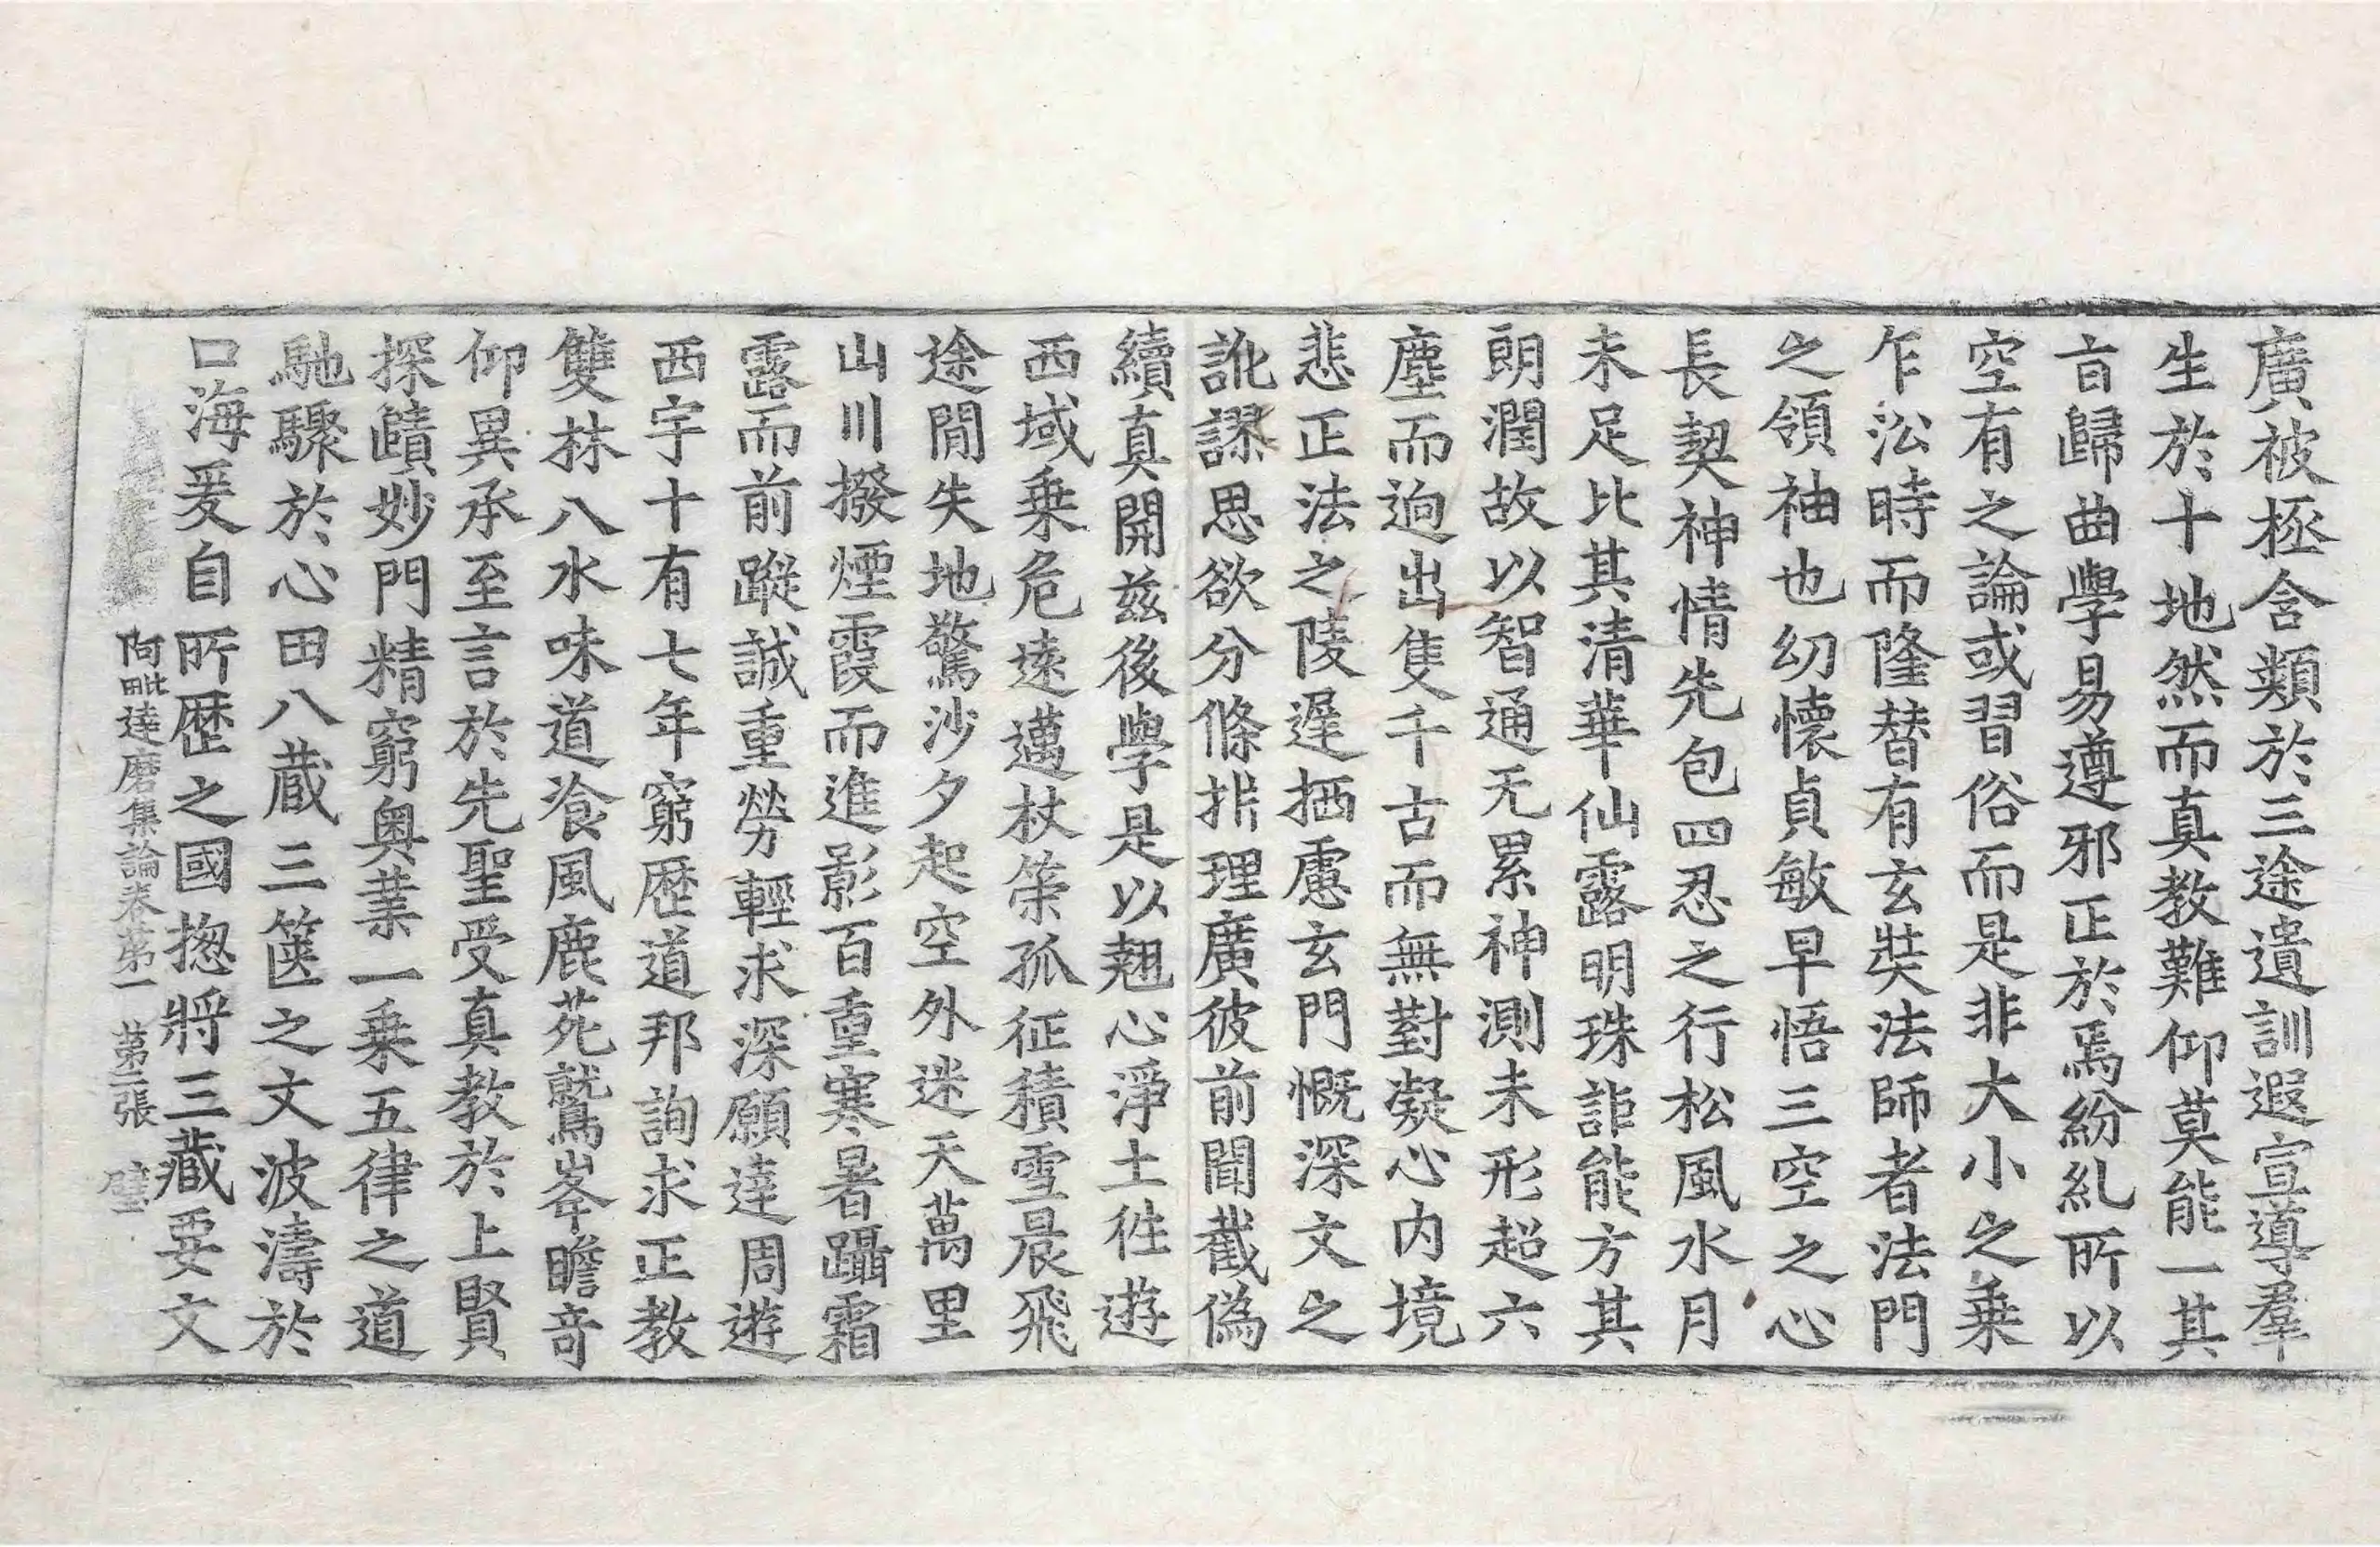 廣被拯含類於三途遺訓遐宣導羣
生於十地然而真教難仰莫能一其
㫖歸曲學易遵邪正於焉紛糺所以
空有之論或習俗而是非大小之乗
乍㳂時而隆替有玄奘法師者法門
之領袖也幼懷貞敏早悟三空之心
長契神情先包四忍之行松風水月
未足比其清華仙露明珠詎能方其
朗潤故以智通无累神測未形超六
塵而逈出隻千古而無對凝心内境
悲正法之陵遲栖慮玄門慨深文之
訛謬思欲分條㭊理廣彼前聞截偽
續真開兹後學是以翹心淨土往遊
西域乗危遠邁杖策孤征積雪晨飛
途閒失地驚沙夕起空外迷天萬里
山川撥煙霞而進影百重寒暑躡霜
露而前蹤誠重勞輕求深願達周遊
西宇十有七年窮歷道邦詢求正教
雙林八水味道飡風鹿苑鷲峯瞻竒
仰異承至言於先聖受真教於上賢
探賾妙門精窮奥業一乗五律之道
馳驟於心田八蔵三篋之文波濤於
口海爰自所歷之國揔將三藏要文
阿毗達磨集論卷第一 第二張 璧